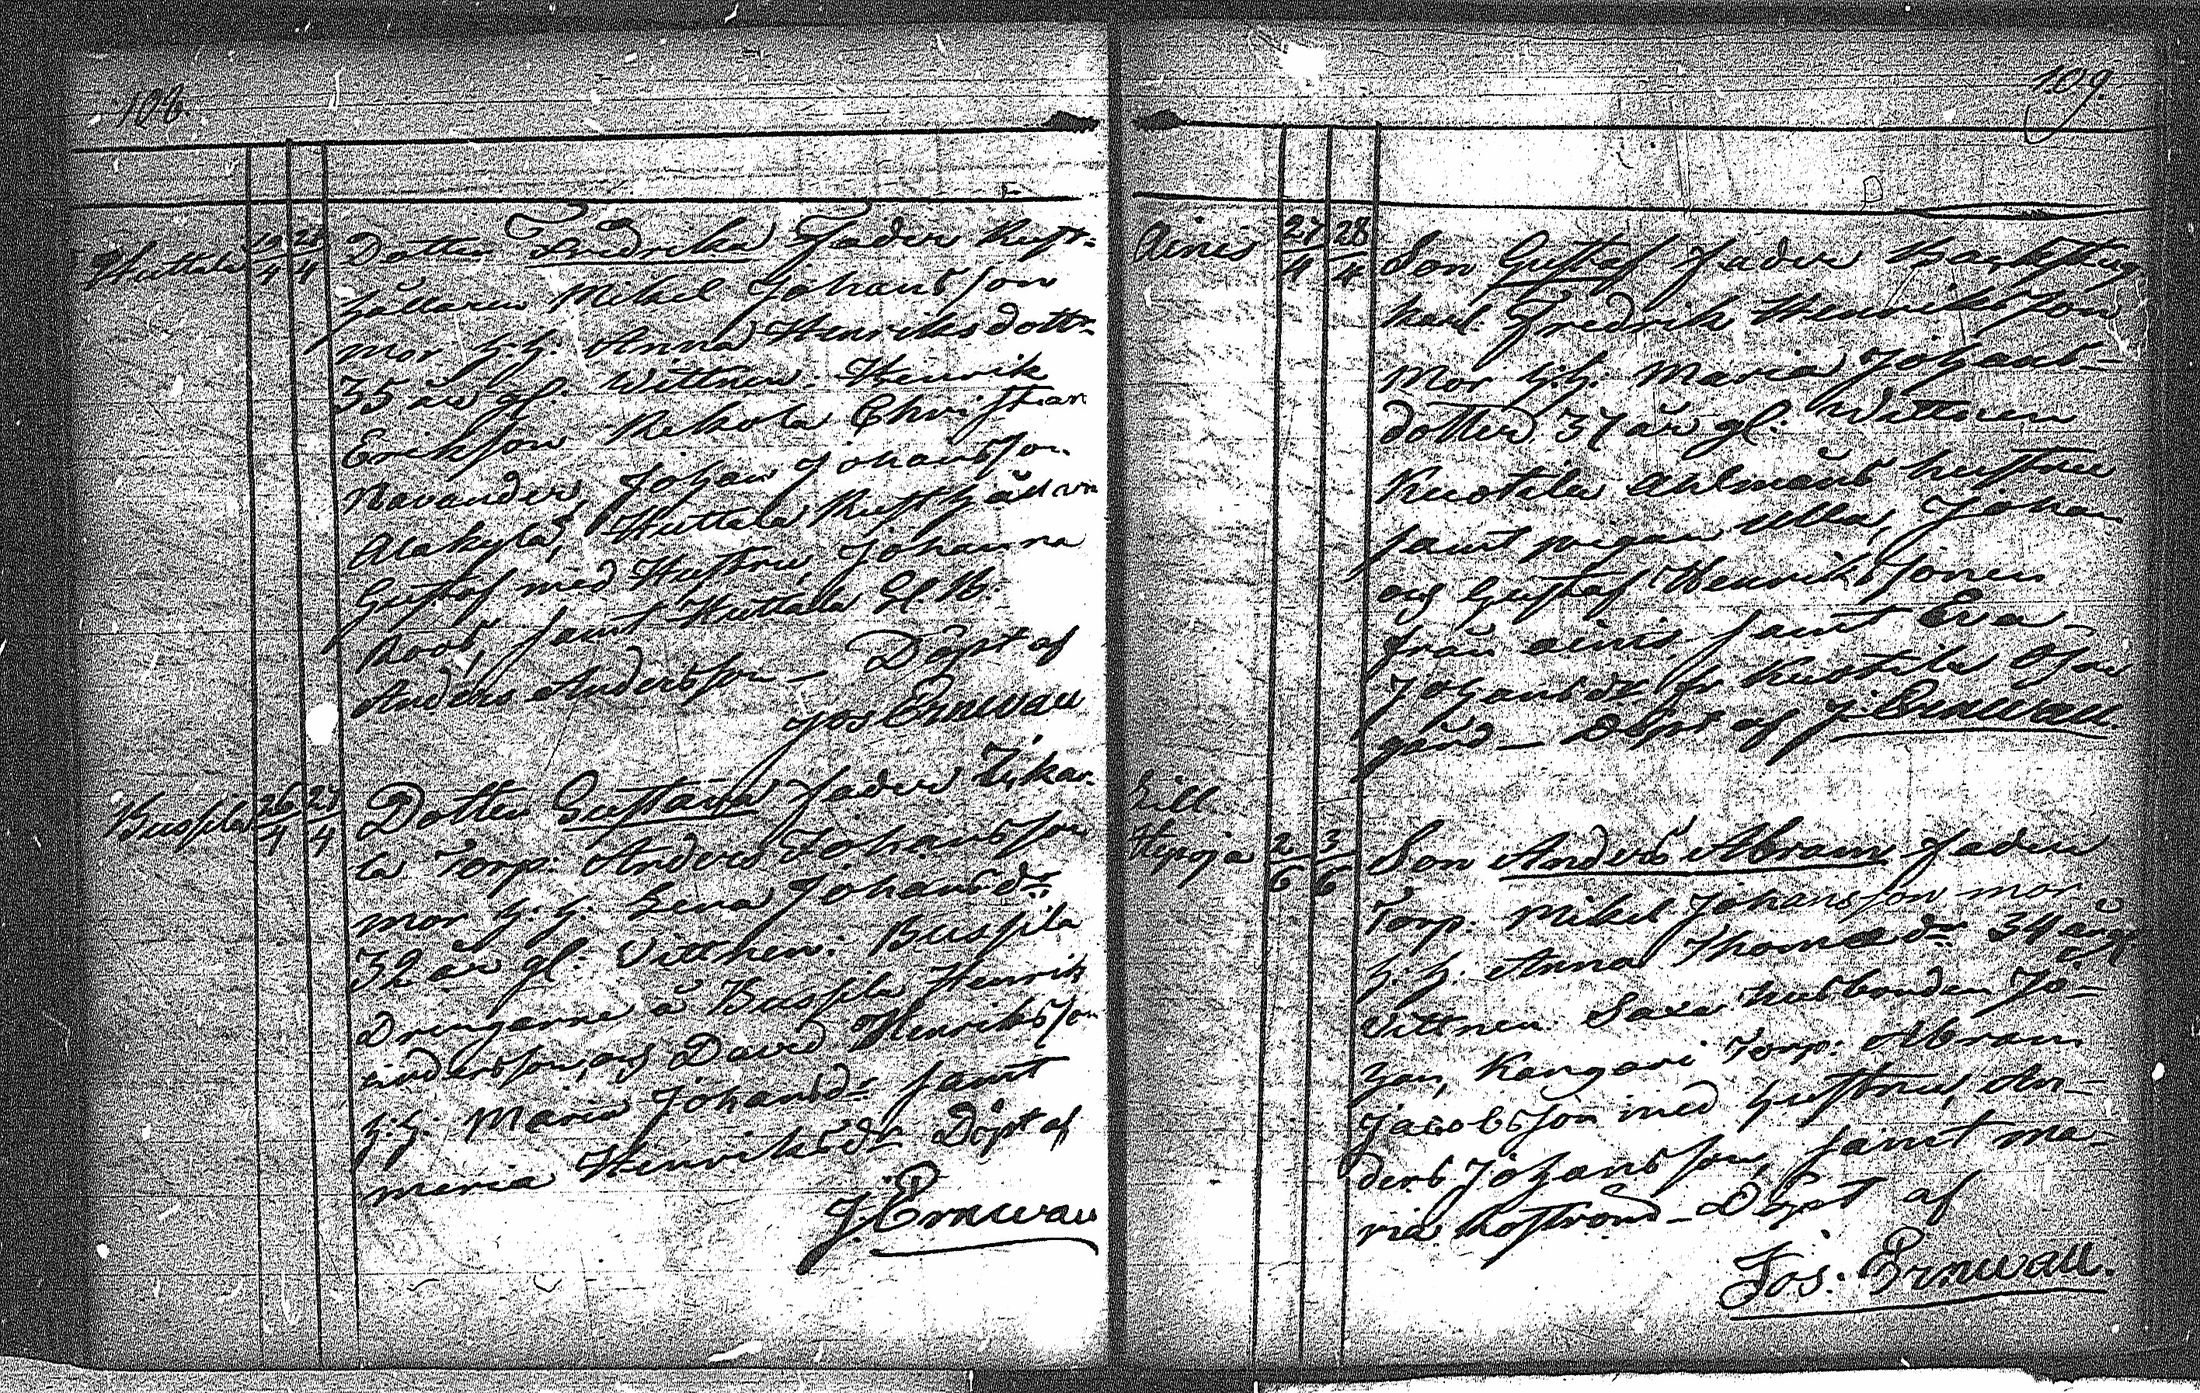 108.
Huttala 19/4 28/4 Dotter Fredrika Fader Rust-
hållaren Mikel Johansson
mor h.h. Anna Henriksdottr
35 år gl. Wittnen: Henrik
Erikson Rekola Christian
Navander, Johan Johansson
Alakylä, Huttala Rusthållaren
Gustof med Hustru, Johanna
Roos, samt Huttala
Anders Andersson – Döpt af
Jos Ernwall
Buspila 26/4 28/4 Dotter Gustava Fader
la Torp: Anders Johansson
mor h.h. Lena Johansdr
32 år gl: Vittnen: Buspila
Drengarne å Buspila Henrik
andersson, och David Henriksson
h.h. Maria Johansdr samt
meria Henriksdr Döpt af
J. Ernwall
109.
Ainis 27/4 28/4 Son Gustaf Fader Backstug
karl. Fredrik Henriksson
Mor h:h. Maria Johans-
dotter 37 år gl: Wittnen
Kuotila Ahlmans hustru
samt pigan Ulla, Johan
och Gustaf Henrikssoner
från ainis samt Eva
Johansdr fr. Kuotila
gård – Döpt af J. Ernwall
Lill
Hepoja 2/5 3/5 Son Anders Abram fader
Torp. Mikel Johansson mor
h.h. Anna Thomædr 34 år gl
Vittnen Saxa husbonden Jo-
han, Kangari Torp: Abram
Jacobsson med hustru, An-
ders Johansson, samt ma-
ria Rostrond – Döpt af
Jos: Ernwall.